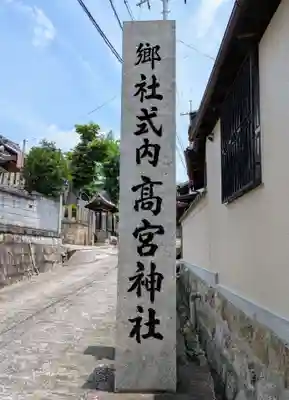 郷社式内髙宮神社